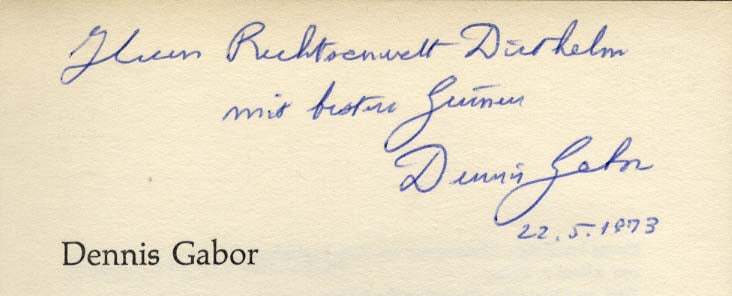 Herrn Rechtsanwalt Diethelm
mit besten Grüssen
Dennis Gabor
22.5.1973
Dennis Gabor